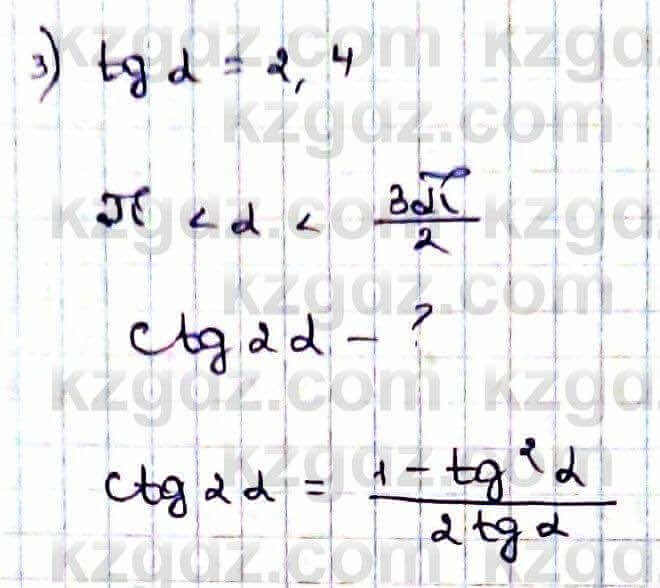 3) tg α = 2,4
π < α < 3π/2
ctg 2α - ?
ctg 2α = (1 - tg²α)/(2 tg α)
kzgdz.com kzgdz
kzgdz.com
kzgdz.com kzgdz
kzgdz.com
kzgdz.com kzgdz
kzgdz.com
kzgdz.com kzgdz